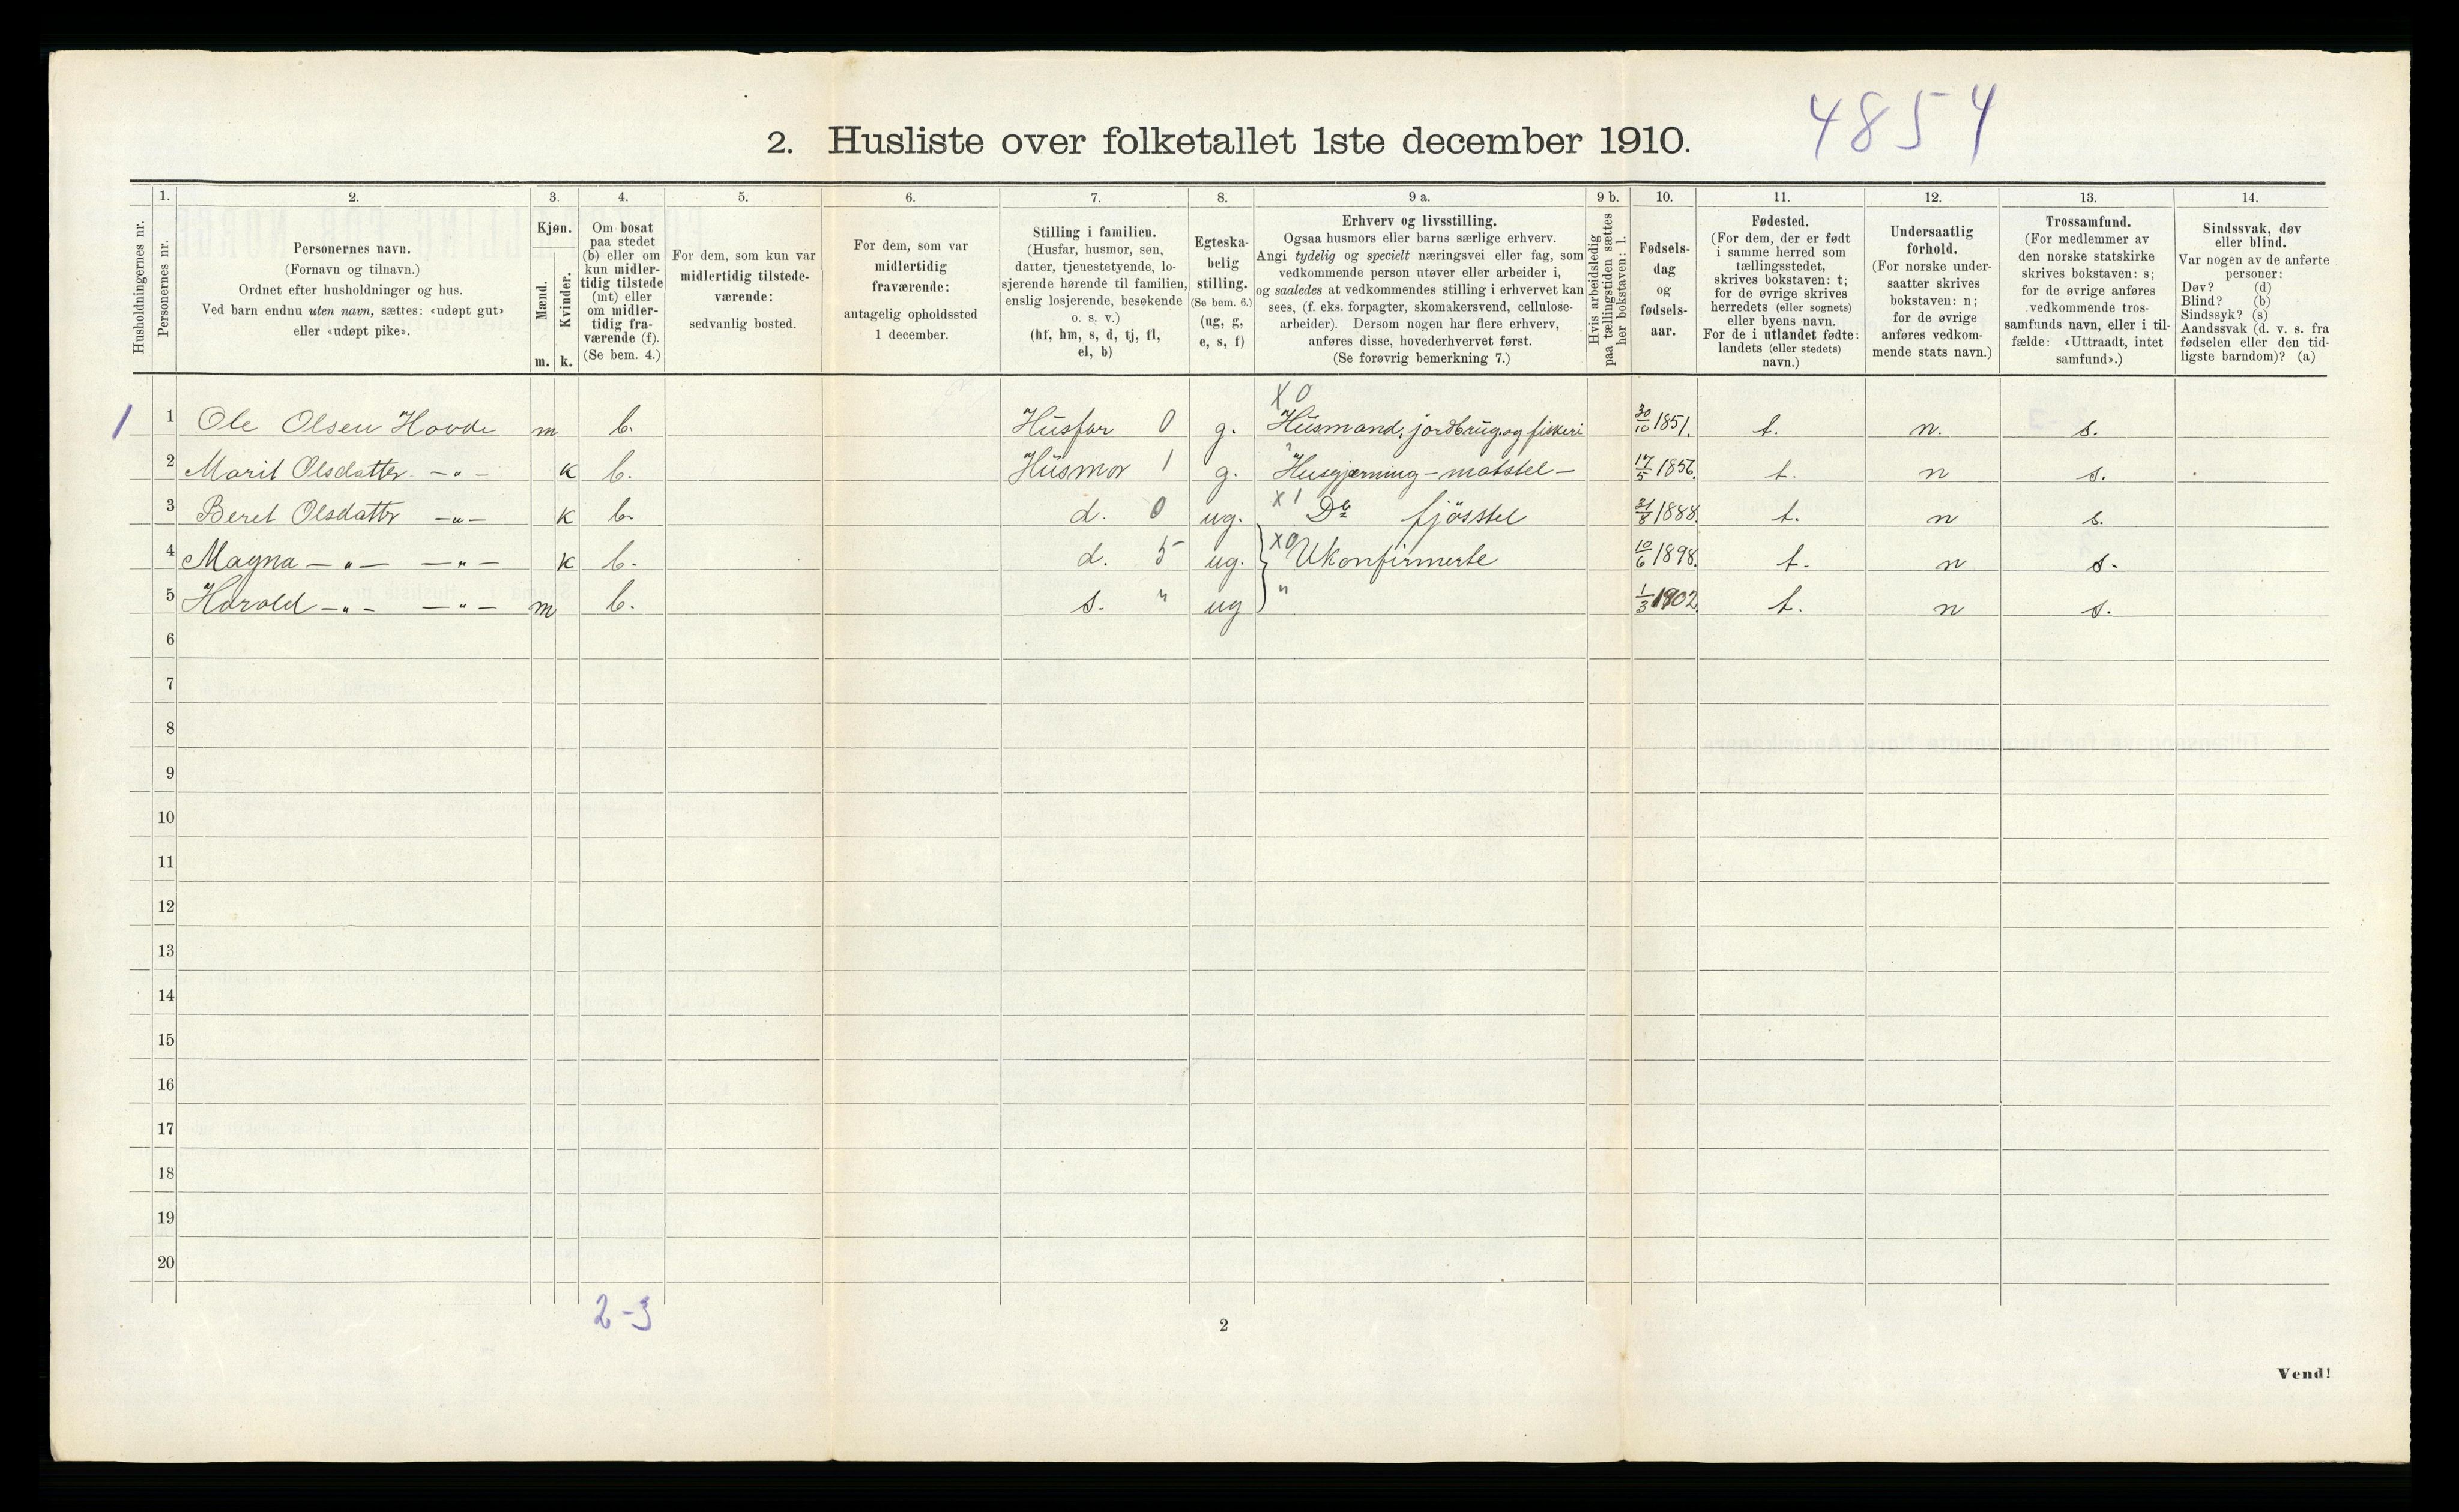 4854
2. Husliste over folketallet 1ste december 1910.
Husholdningernes nr.
1.
Personernes nr.
2.
Personernes navn.
(Fornavn og tilnavn.)
Ordnet efter husholdninger og hus.
Ved barn endnu uten navn, sættes: «udøpt gut»
eller «udøpt pike».
3.
Kjøn.
Mænd.
Kvinder.
m. k.
4.
Om bosat
paa stedet
(b) eller om
kun midler-
tidig tilstede
(mt) eller
om midler-
tidig fra-
værende (f).
(Se bem. 4.)
5.
For dem, som kun var
midlertidig tilstede-
værende:
sedvanlig bosted.
6.
For dem, som var
midlertidig
fraværende:
antagelig opholdssted
1 december.
7.
Stilling i familien.
(Husfar, husmor, søn,
datter, tjenestetyende, lo-
sjerende hørende til familien,
enslig losjerende, besøkende
o. s. v.)
(hf, hm, s, d, tj, fl,
el, b)
8.
Egteska-
belig
stilling.
(Se bem. 6.)
(ug, g,
e, s, f)
9 a.
Erhverv og livsstilling.
Ogsaa husmors eller barns særlige erhverv.
Angi tydelig og specielt næringsvei eller fag, som
vedkommende person utøver eller arbeider i,
og saaledes at vedkommendes stilling i erhvervet kan
sees, (f. eks. forpagter, skomakersvend, cellulose-
arbeider). Dersom nogen har flere erhverv,
anføres disse, hovederhvervet først.
(Se forøvrig bemerkning 7.)
9 b.
Hvis arbeidsledig
paa tællingstiden sættes
her bokstaven: l.
10.
Fødsels-
dag
og
fødsels-
aar.
11.
Fødested.
(For dem, der er født
i samme herred som
tællingsstedet,
skrives bokstaven: t;
for de øvrige skrives
herredets (eller sognets)
eller byens navn.
For de i utlandet fødte:
landets (eller stedets)
navn.)
12.
Undersaatlig
forhold.
(For norske under-
saatter skrives
bokstaven: n;
for de øvrige
anføres vedkom-
mende stats navn.)
13.
Trossamfund.
(For medlemmer av
den norske statskirke
skrives bokstaven: s;
for de øvrige anføres
vedkommende tros-
samfunds navn, eller i til-
fælde: «Uttraadt, intet
samfund».)
14.
Sindssvak, døv
eller blind.
Var nogen av de anførte
personer:
Døv? (d)
Blind? (b)
Sindssyk? (s)
Aandssvak (d. v. s. fra
fødselen eller den tid-
ligste barndom)? (a)
X 0
1 1 Ole Olsen Hovde m b. Husfar 0 g. Husmand, jordbrug og fiskeri 30/10 1851. t. n. s.
2 Marit Olsdatter -"- k b. Husmor 1 g. Husgjerning - matstel - 17/5 1856. t. n s.
3 Beret Olsdatter -"- k b. d. 0 ug. X 1 Do fjösstel 31/8 1888. t. n s.
4 Magna -"- -"- k b. d. 5 ug. X0 Ukonfirmerte 10/6 1898. t. n s.
5 Harald -"- -"- m b. s. " ug " 1/3 1902. t. n s.
6
7
8
9
10
11
12
13
14
15
16
17
18
19
20
2-3
2
Vend!